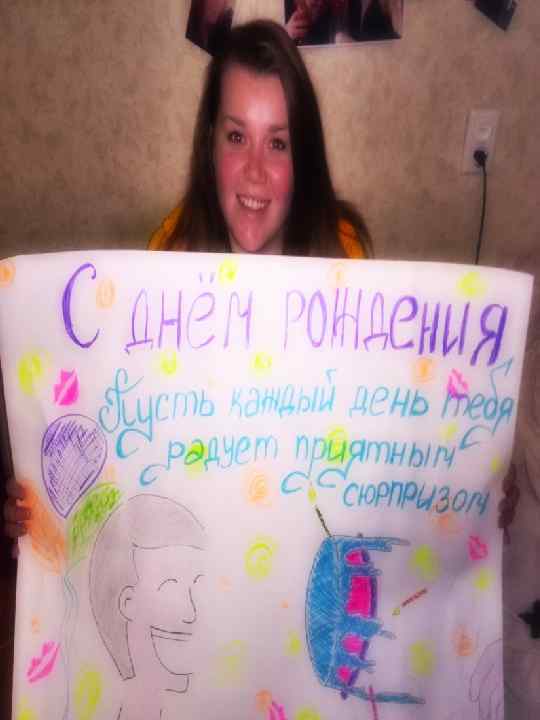 С днём рождения
Пусть каждый день тебя
радует приятным
сюрпризом